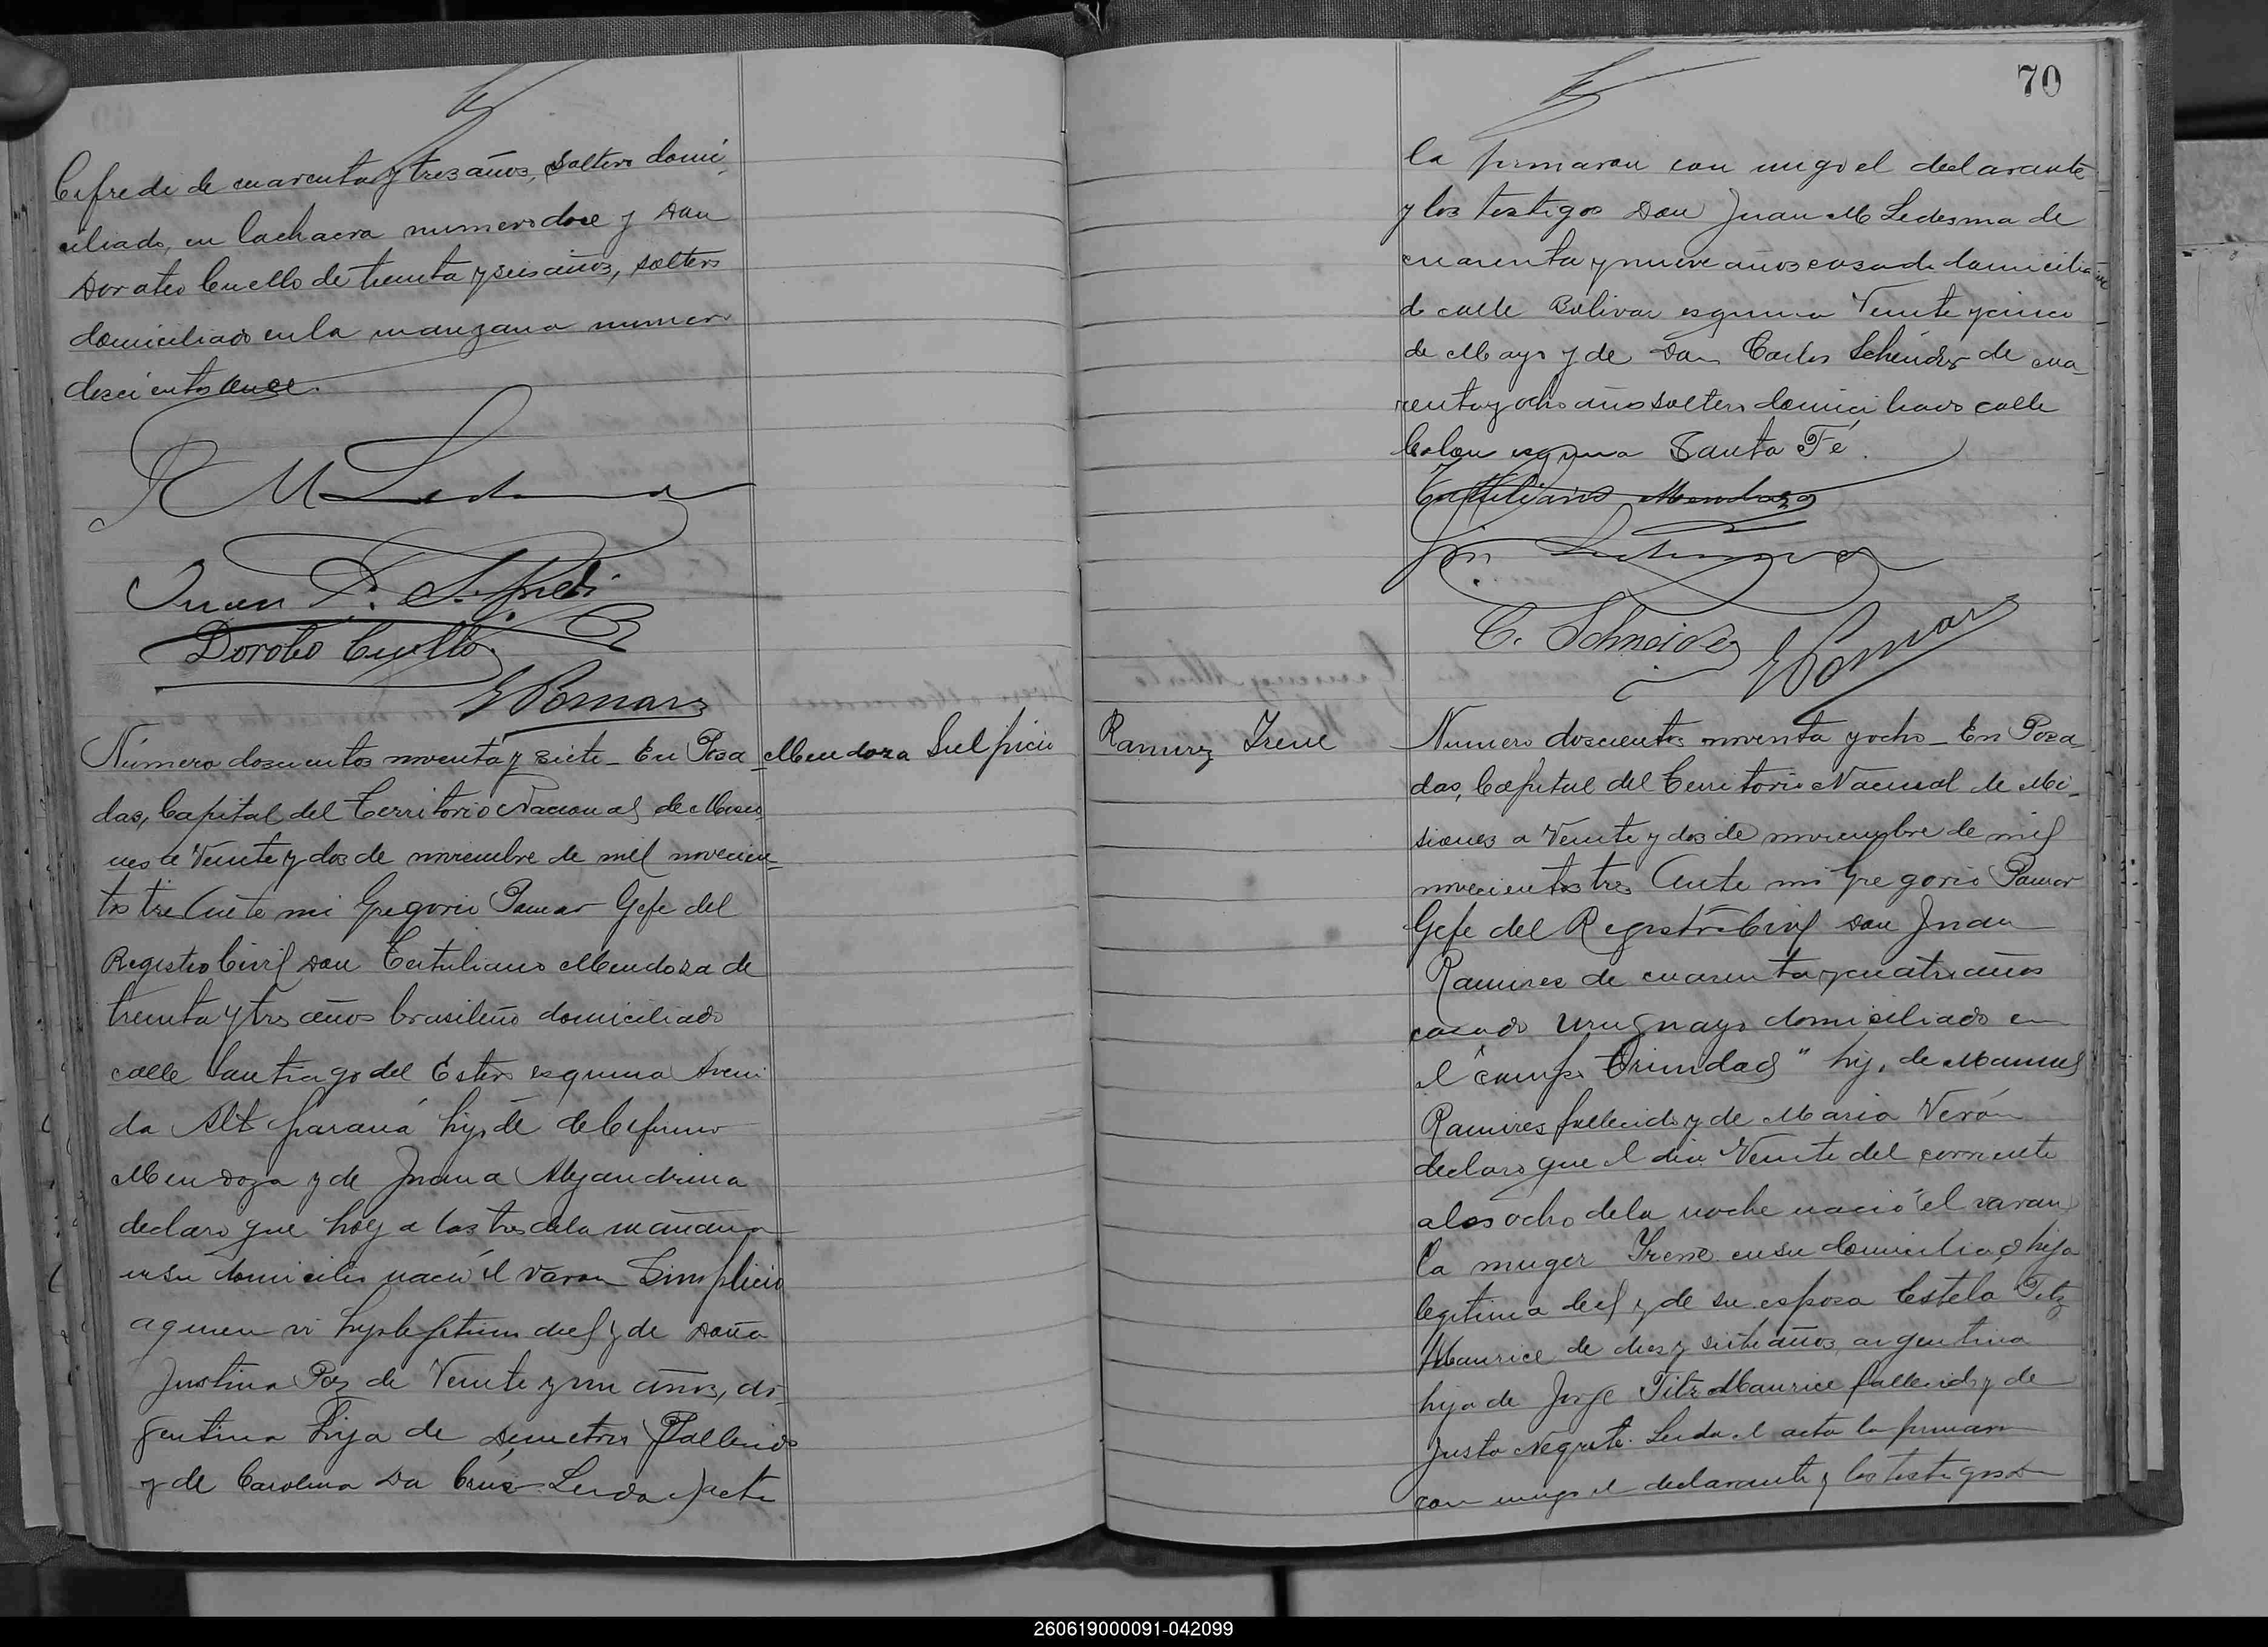 Cefredi de cuarenta y tres años, soltero domi-
ciliado, en la chacra numero doce y Don
Doroteo Cuello de treinta y seis años, soltero
domiciliado en la manzana numero
doscientos once.
Juan F. Sifredi
Doroteo Cuello
G Pomar
Número doscientos noventa y siete - En Posa-
das, Capital del Territorio Nacional de Misio
nes a Veinte y dos de noviembre de mil novecien-
tos tres Ante mi Gregorio Pomar Gefe del
Registro Civil Don Tertuliano Mendoza de
treinta y tres años brasileño domiciliado
calle Santiago del Estero esquina Aveni
da Alt paraná hijo de Mendoza y de Juana Alejandrina
declaro que hoy a las tres de la mañana
en su domicilio nació el varon Simplicio
a quien vi hijo legitimo de el y de Doña
Justina Paz de Veinte y un años, ar-
gentina hija de Demetrio Fallecido
y de Carolina Da Cruz Leida el acta
Mendoza Sulpicio
70
la firmaron con migo el declarante
y los testigos Don Juan M Ledesma de
cuarenta y nueve años casado domicilia
do calle Bolivar esquina Veinte y cinco
de Mayo y de Don Carlos Schéider de cua-
renta y ocho años soltero domiciliado calle
Colon esquina Santa Fé.
Tertuliano Mendoza
C. Schneider
G Pomar
Ramirez Irene
Numero doscientos noventa y ocho - En Posa-
das, Capital del Territorio Nacional de Mi-
siones a Veinte y dos de noviembre de mil
novecientos tres Ante mi Gregorio Pomar
Gefe del Registro Civil Don Juan
Ramires de cuarenta y cuatro años
casado Uruguayo domiciliado en
el "campo Trinidad" hijo de Manuel
Ramires fallecido y de Maria Verón
declaro que el dia Veinte del corriente
a las ocho de la noche nació el varon
la muger Irene en su domicilio, hija
legitima de el y de su esposa Estela Fitz
Maurice de dies y siete años argentina
hija de Jorge Fitz Maurice fallecido y de
Justa Negrete. Leida el acta la firmaron
con migo el declarante y los testigos Don